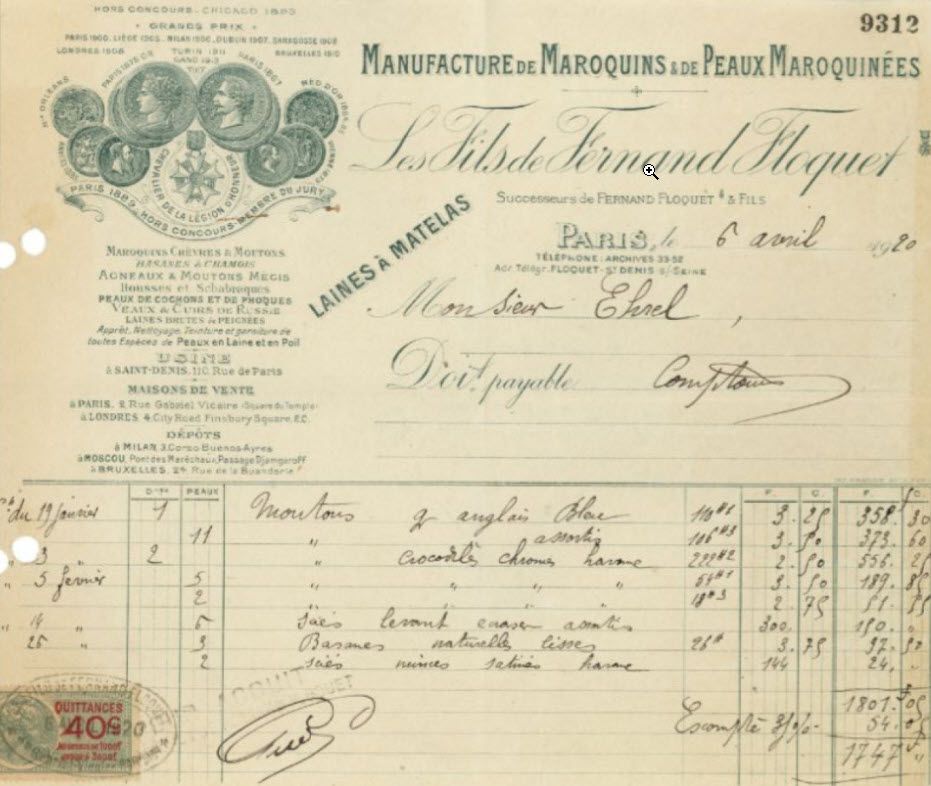 HORS CONCOURS - CHICAGO 1893
GRANDS PRIX
PARIS 1900, LIÈGE 1905, MILAN 1906, DUBLIN 1907, SARAGOSSE 1908
LONDRES 1908 TURIN 1911 BRUXELLES 1910
GAND 1913
PARIS 1878 OR PARIS 1867
CHEVALIER DE LA LÉGION D'HONNEUR
PARIS 1889 - HORS CONCOURS - MEMBRE DU JURY
9312
MANUFACTURE DE MAROQUINS & DE PEAUX MAROQUINÉES
Les Fils de Fernand Floquet
Successeurs de FERNAND FLOQUET & FILS
LAINES À MATELAS
PARIS, le 6 avril 1920
TÉLÉPHONE: ARCHIVES 33-52
Adr. Télégr. FLOQUET-ST DENIS s/-SEINE
Monsieur Ehrel,
Doit payable Comptant
MAROQUINS CHÈVRES & MOUTONS
BASANES & CHAMOIS
AGNEAUX & MOUTONS MÉGIS
Housses et Schabraques
PEAUX DE COCHONS ET DE PHOQUES
VEAUX & CUIRS DE RUSSIE
LAINES BRUTES & PEIGNÉES
Apprêt, Nettoyage, Teinture et garniture de
toutes Espèces de Peaux en Laine et en Poil
USINE
à SAINT-DENIS, 110 Rue de Paris
MAISONS DE VENTE
à PARIS, 2 Rue Gabriel Vicaire (Square du Temple)
à LONDRES, 4, City Road Finsbury Square, E.C.
DÉPÔTS
à MILAN, 3, Corso Buenos-Ayres
à MOSCOU, Pont des Maréchaux, Passage Djamgaroff
à BRUXELLES, 24, Rue de la Buanderie
Dnes PEAUX F. C. F. C.
du 19 janvier 1 Moutons g anglais Bleu 110 3.25 358.30
11 " assortis 106 3.50 373.60
3 " 2 " crocodilés chromés havane 222 2.50 556.25
" 5 février 5 " " " " 54 3.50 189.85
2 18 2.75 51.55
" 14 " 5 levant écraser assortis 300. 150.
26 " 3 Basanes naturelles lisses 26 3.75 97.50
2 satinés havane 144 24.
1801.05
Escompte 3% 54.05
1747
QUITTANCES
40c